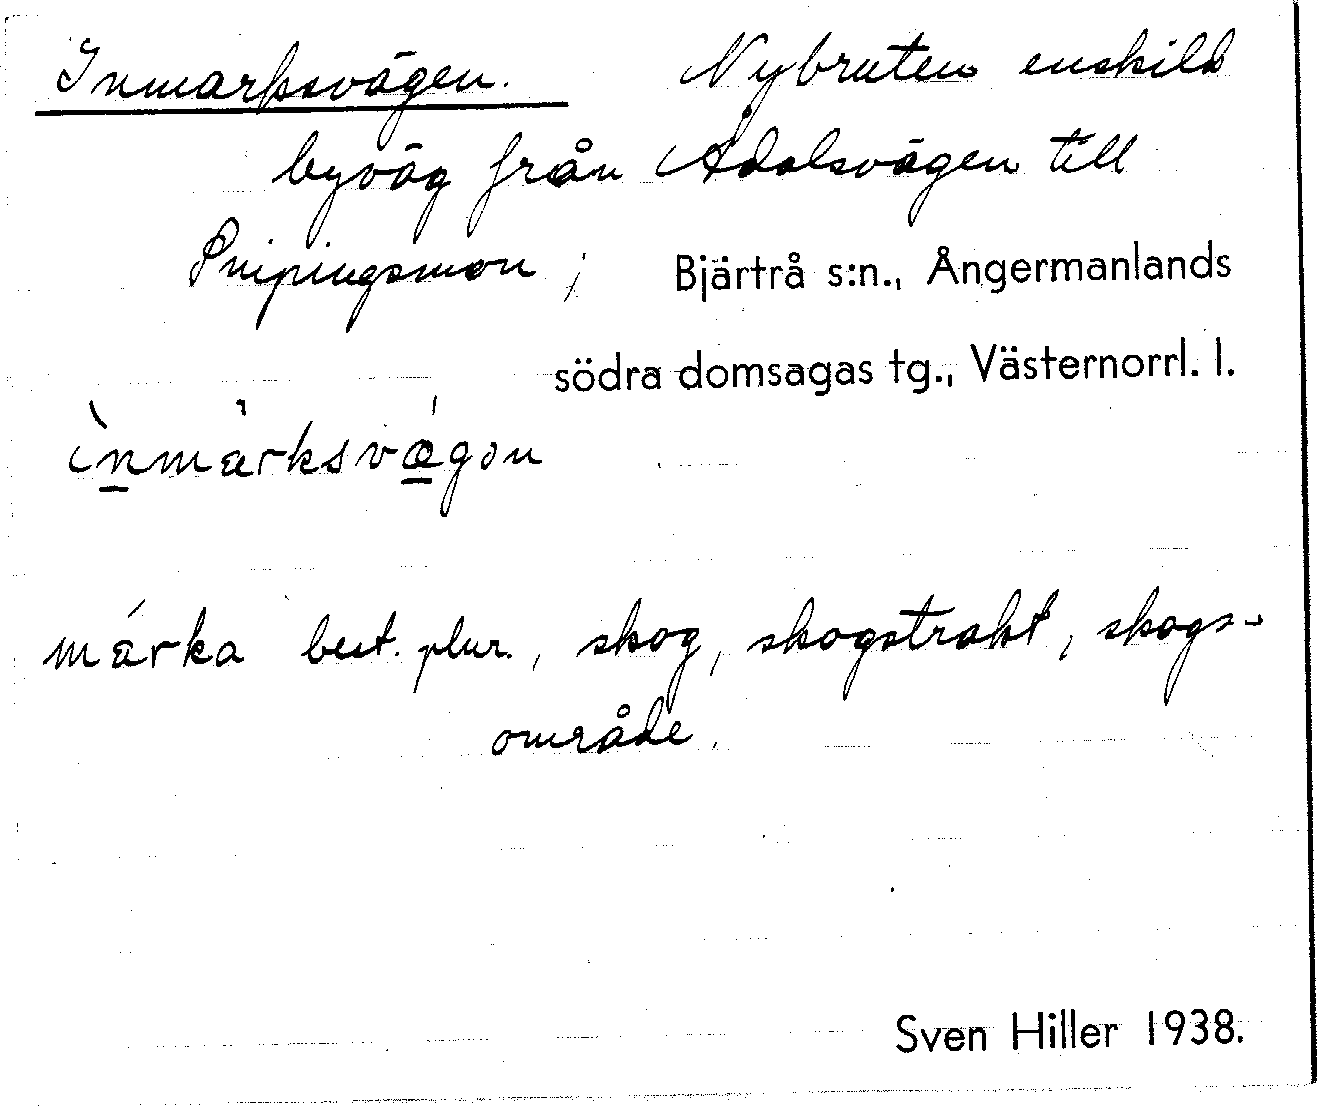 Inmarksvägen. Nybruten enskild
byväg från Ådalsvägen till
Snipingsmon; Bjärtrå s:n., Ångermanlands
södra domsagas tg., Västernorrl. l.
ìnmarksvǽgən
márka best. plur., skog, skogstrakt, skogs-
område.
Sven Hiller 1938.